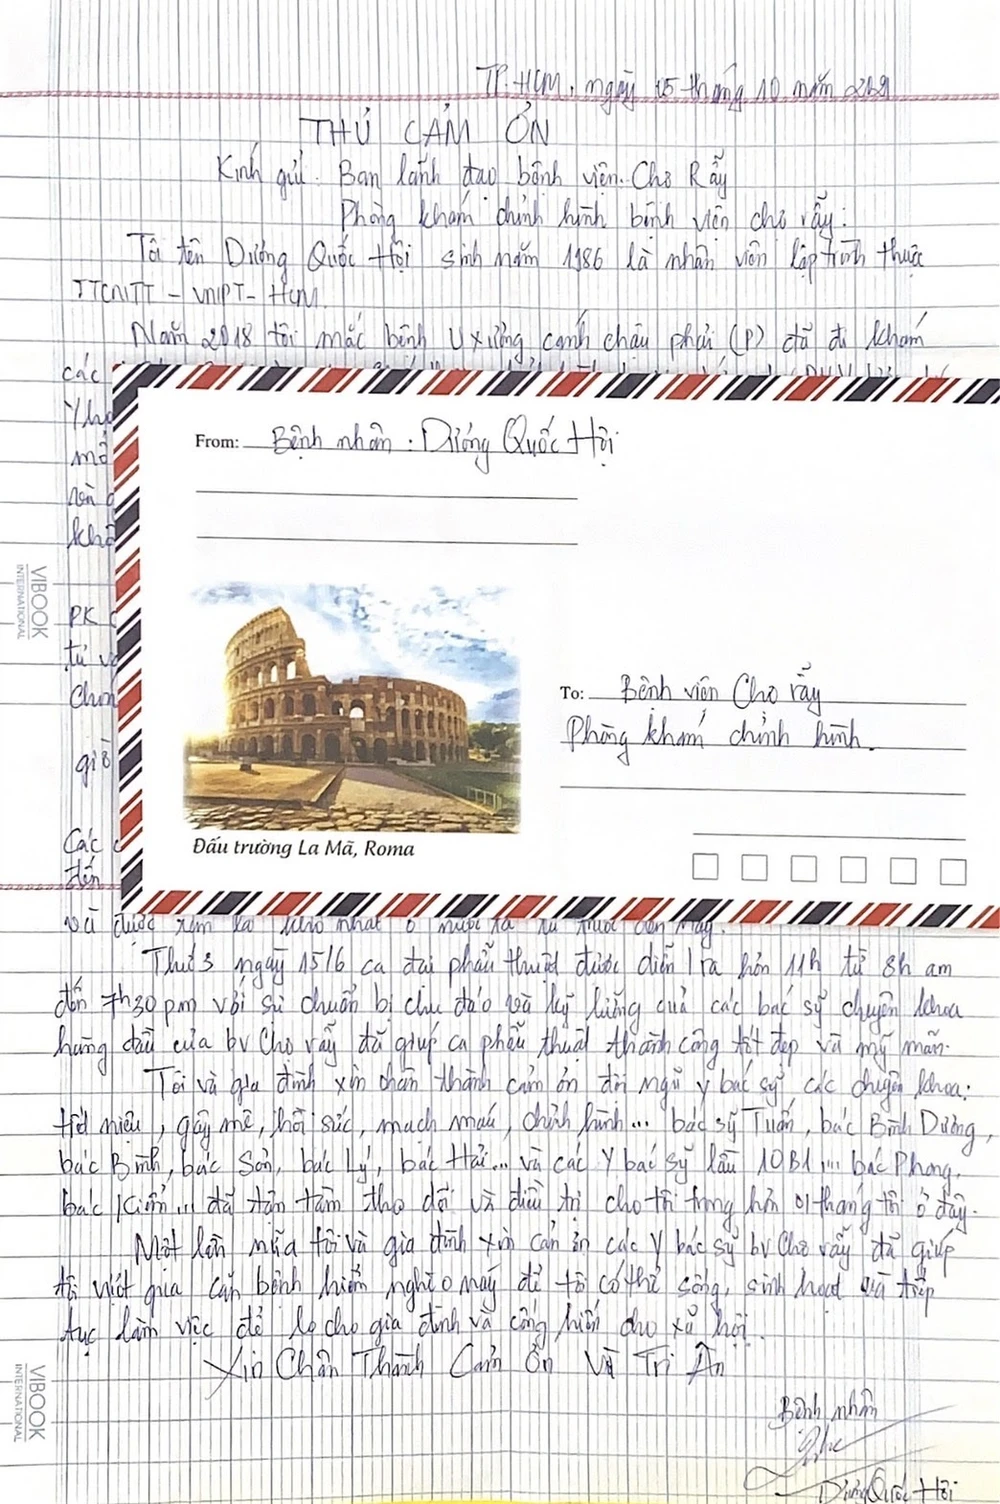 TP.HCM, ngày 15 tháng 10 năm 2021
THƯ CẢM ƠN
Kính gửi: Ban lãnh đạo bệnh viện Chợ Rẫy
Phòng khám chỉnh hình bệnh viện chợ rẫy.
Tôi tên Dương Quốc Hội sinh năm 1986 là nhân viên lập trình thuộc
TTCNTT - VNPT - HCM.
Năm 2018 tôi mắc bệnh U xương cánh chậu phải (P) đã đi khám
các
mổ
và
khô
PK
từ
giờ
Các
đến
From: Bệnh nhân: Dương Quốc Hội
To: Bệnh viện Chợ rẫy
Phòng khám chỉnh hình.
Đấu trường La Mã, Roma
VIBOOK
INTERNATIONAL
và được xem là nhất ở nước ta từ trước đến nay.
Thứ 3 ngày 15/6 ca đại phẫu thuật được diễn ra hơn 11h từ 8h am
đến 7h30 pm với sự chuẩn bị chu đáo và kỹ lưỡng của các bác sỹ chuyên khoa
hàng đầu của bv Chợ rẫy đã giúp ca phẫu thuật thành công tốt đẹp và mỹ mãn.
Tôi và gia đình xin chân thành cảm ơn đội ngũ y bác sỹ các chuyên khoa:
tiết niệu, gây mê, hồi sức, mạch máu, chỉnh hình... bác sỹ Tuấn, bác Bình Dương,
bác Bình, bác Sơn, bác Lý, bác Hải... và các Y bác sỹ lầu 10B1... bác Phong,
bác ... đã tận tâm theo dõi và điều trị cho tôi trong hơn 01 tháng tôi ở đây.
Một lần nữa tôi và gia đình xin cảm ơn các Y bác sỹ bv Chợ rẫy đã giúp
tôi vượt qua căn bệnh hiểm nghèo này để tôi có thể sống, sinh hoạt và tiếp
tục làm việc để lo cho gia đình và cống hiến cho xã hội.
Xin Chân Thành Cảm Ơn Và Tri Ân
VIBOOK
INTERNATIONAL
Bệnh nhân
Dương Quốc Hội